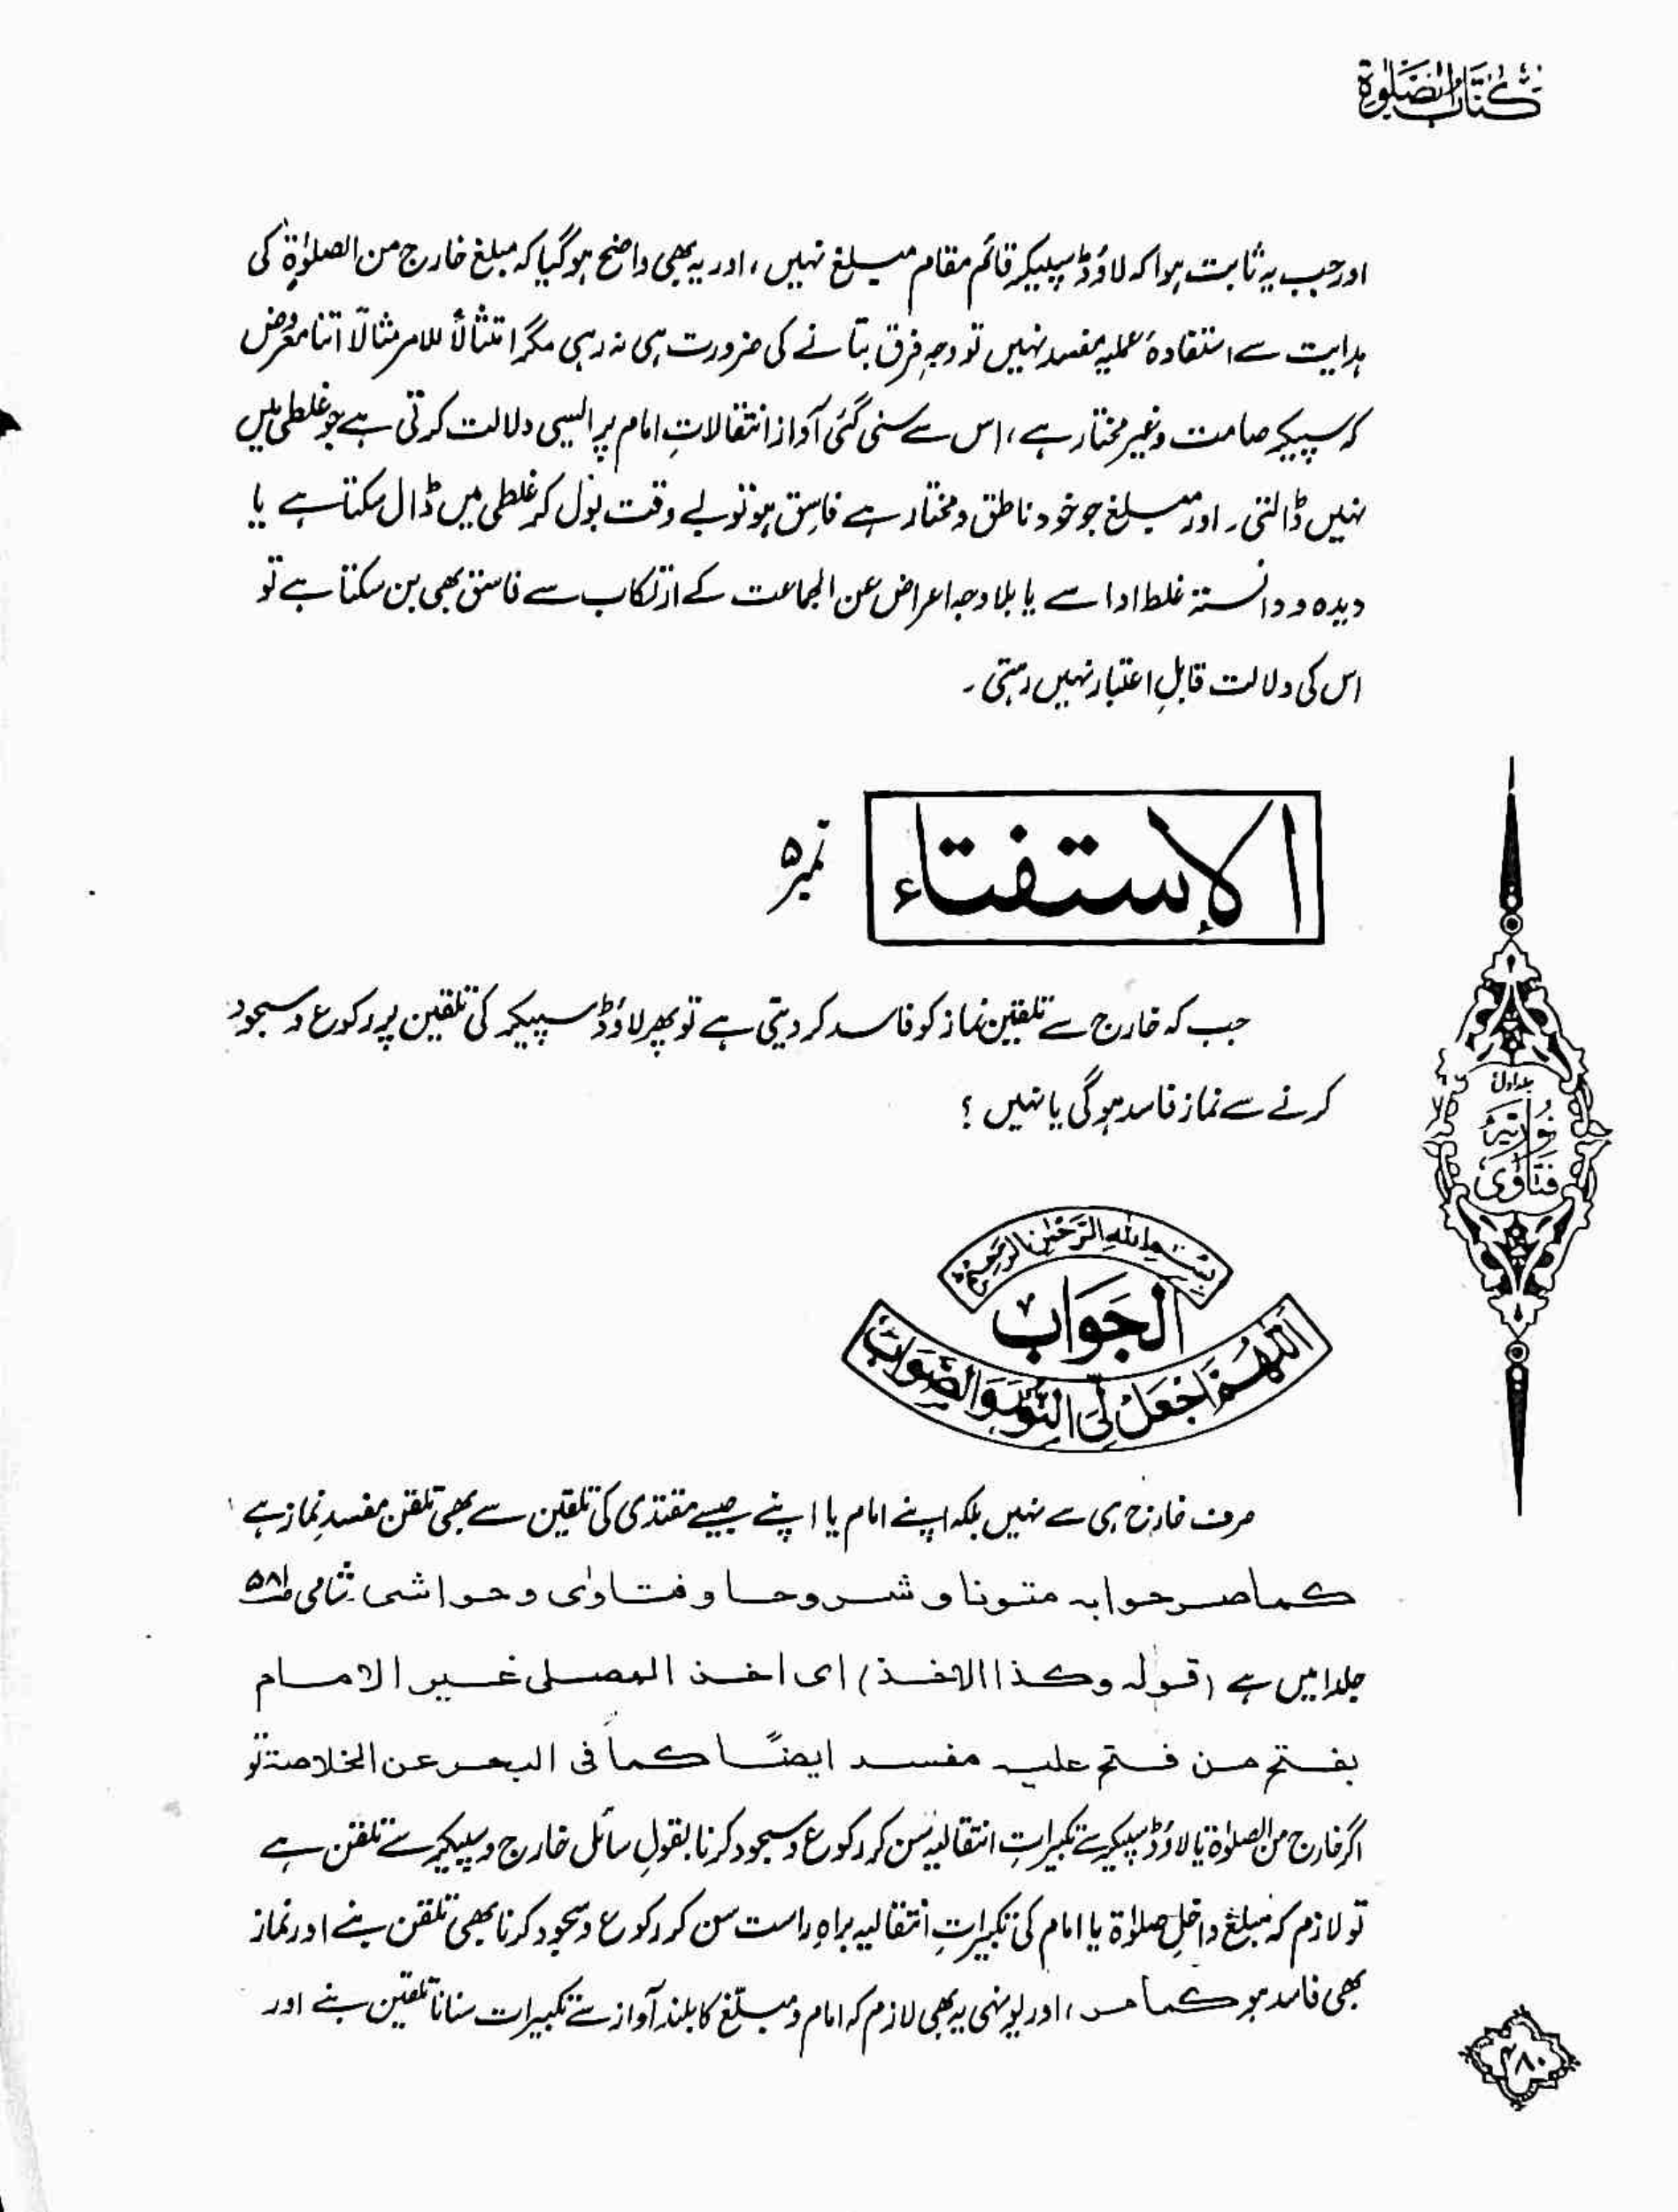 کتاب الصلوٰۃ
اور جب یہ ثابت ہوا کہ لاؤڈ سپیکر قائم مقام مبلغ نہیں، اور یہ بھی واضح ہو گیا کہ مبلغ خارج من الصلوٰۃ کی
ہدایت سے استفادۂ عملیہ مفسد نہیں تو وجہِ فرق بتانے کی ضرورت ہی نہ رہی مگر امتثالاً للامر مثالاً اتنا معروض
کہ سپیکر صامت و غیر مختار ہے، اس سے سنی گئی آواز انتقالاتِ امام پر ایسی دلالت کرتی ہے جو غلطی میں
نہیں ڈالتی۔ اور مبلغ جو خود ناطق و مختار ہے فاسق ہو تو بے وقت بول کر غلطی میں ڈال سکتا ہے یا
دیدہ و دانستہ غلط ادا سے یا بلا وجہ اعراض عن الجماعت کے ارتکاب سے فاسق بھی بن سکتا ہے تو
اس کی دلالت قابلِ اعتبار نہیں رہتی۔
الإستفتاء نمبر ۵
جب کہ خارج سے تلقین نماز کو فاسد کر دیتی ہے تو پھر لاؤڈ سپیکر کی تلقین پر رکوع و سجود
کرنے سے نماز فاسد ہو گی یا نہیں ؟
جلد اول
نوریہ
فتاوی
بسم اللہ الرحمٰن الرحیم
الجواب
اللهم اجعل لی النور والصواب
صرف خارج ہی سے نہیں بلکہ اپنے امام یا اپنے جیسے مقتدی کی تلقین سے بھی تلقن مفسدِ نماز ہے
کما صرحوا بہ متونا و شروحا و فتاوٰی و حواشی شامی ص۵۸۱
جلد۱ میں ہے (قولہ وکذا الاخذ) ای اخذ المصلی غیر الامام
بفتح من فتح علیہ مفسد ایضًا کما فی البحر عن الخلاصۃ تو
اگر خارج من الصلوٰۃ یا لاؤڈ سپیکر سے تکبیراتِ انتقالیہ سن کر رکوع و سجود کرنا بقولِ سائل خارج و سپیکر سے تلقن ہے
تو لازم کہ مبلغ داخلِ صلوٰۃ یا امام کی تکبیراتِ انتقالیہ براہِ راست سن کر رکوع و سجود کرنا بھی تلقن بنے اور نماز
بھی فاسد ہو کما مر، اور یونہی یہ بھی لازم کہ امام و مبلّغ کا بلند آواز سے تکبیرات سنانا تلقین بنے اور
۴۸۰